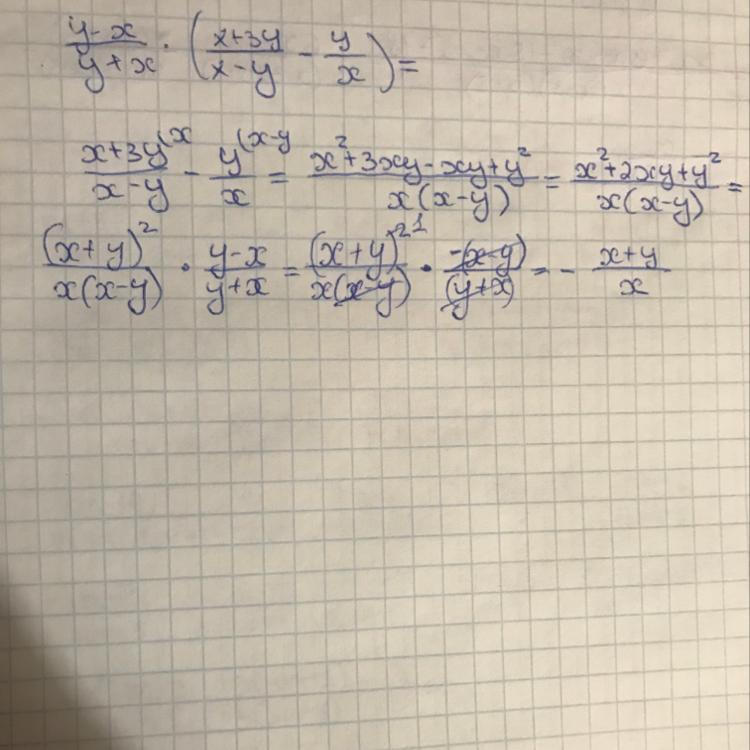 (y-x)/(y+x) · ((x+3y)/(x-y) - y/x) =
(x+3y^(x)/(x-y) - y^(x-y/x = (x²+3xy-xy+y²)/(x(x-y)) = (x²+2xy+y²)/(x(x-y)) =
(x+y)²/(x(x-y)) · (y-x)/(y+x) = (x+y)²¹/(x(x-y)) · -(x-y)/(y+x) = - (x+y)/x